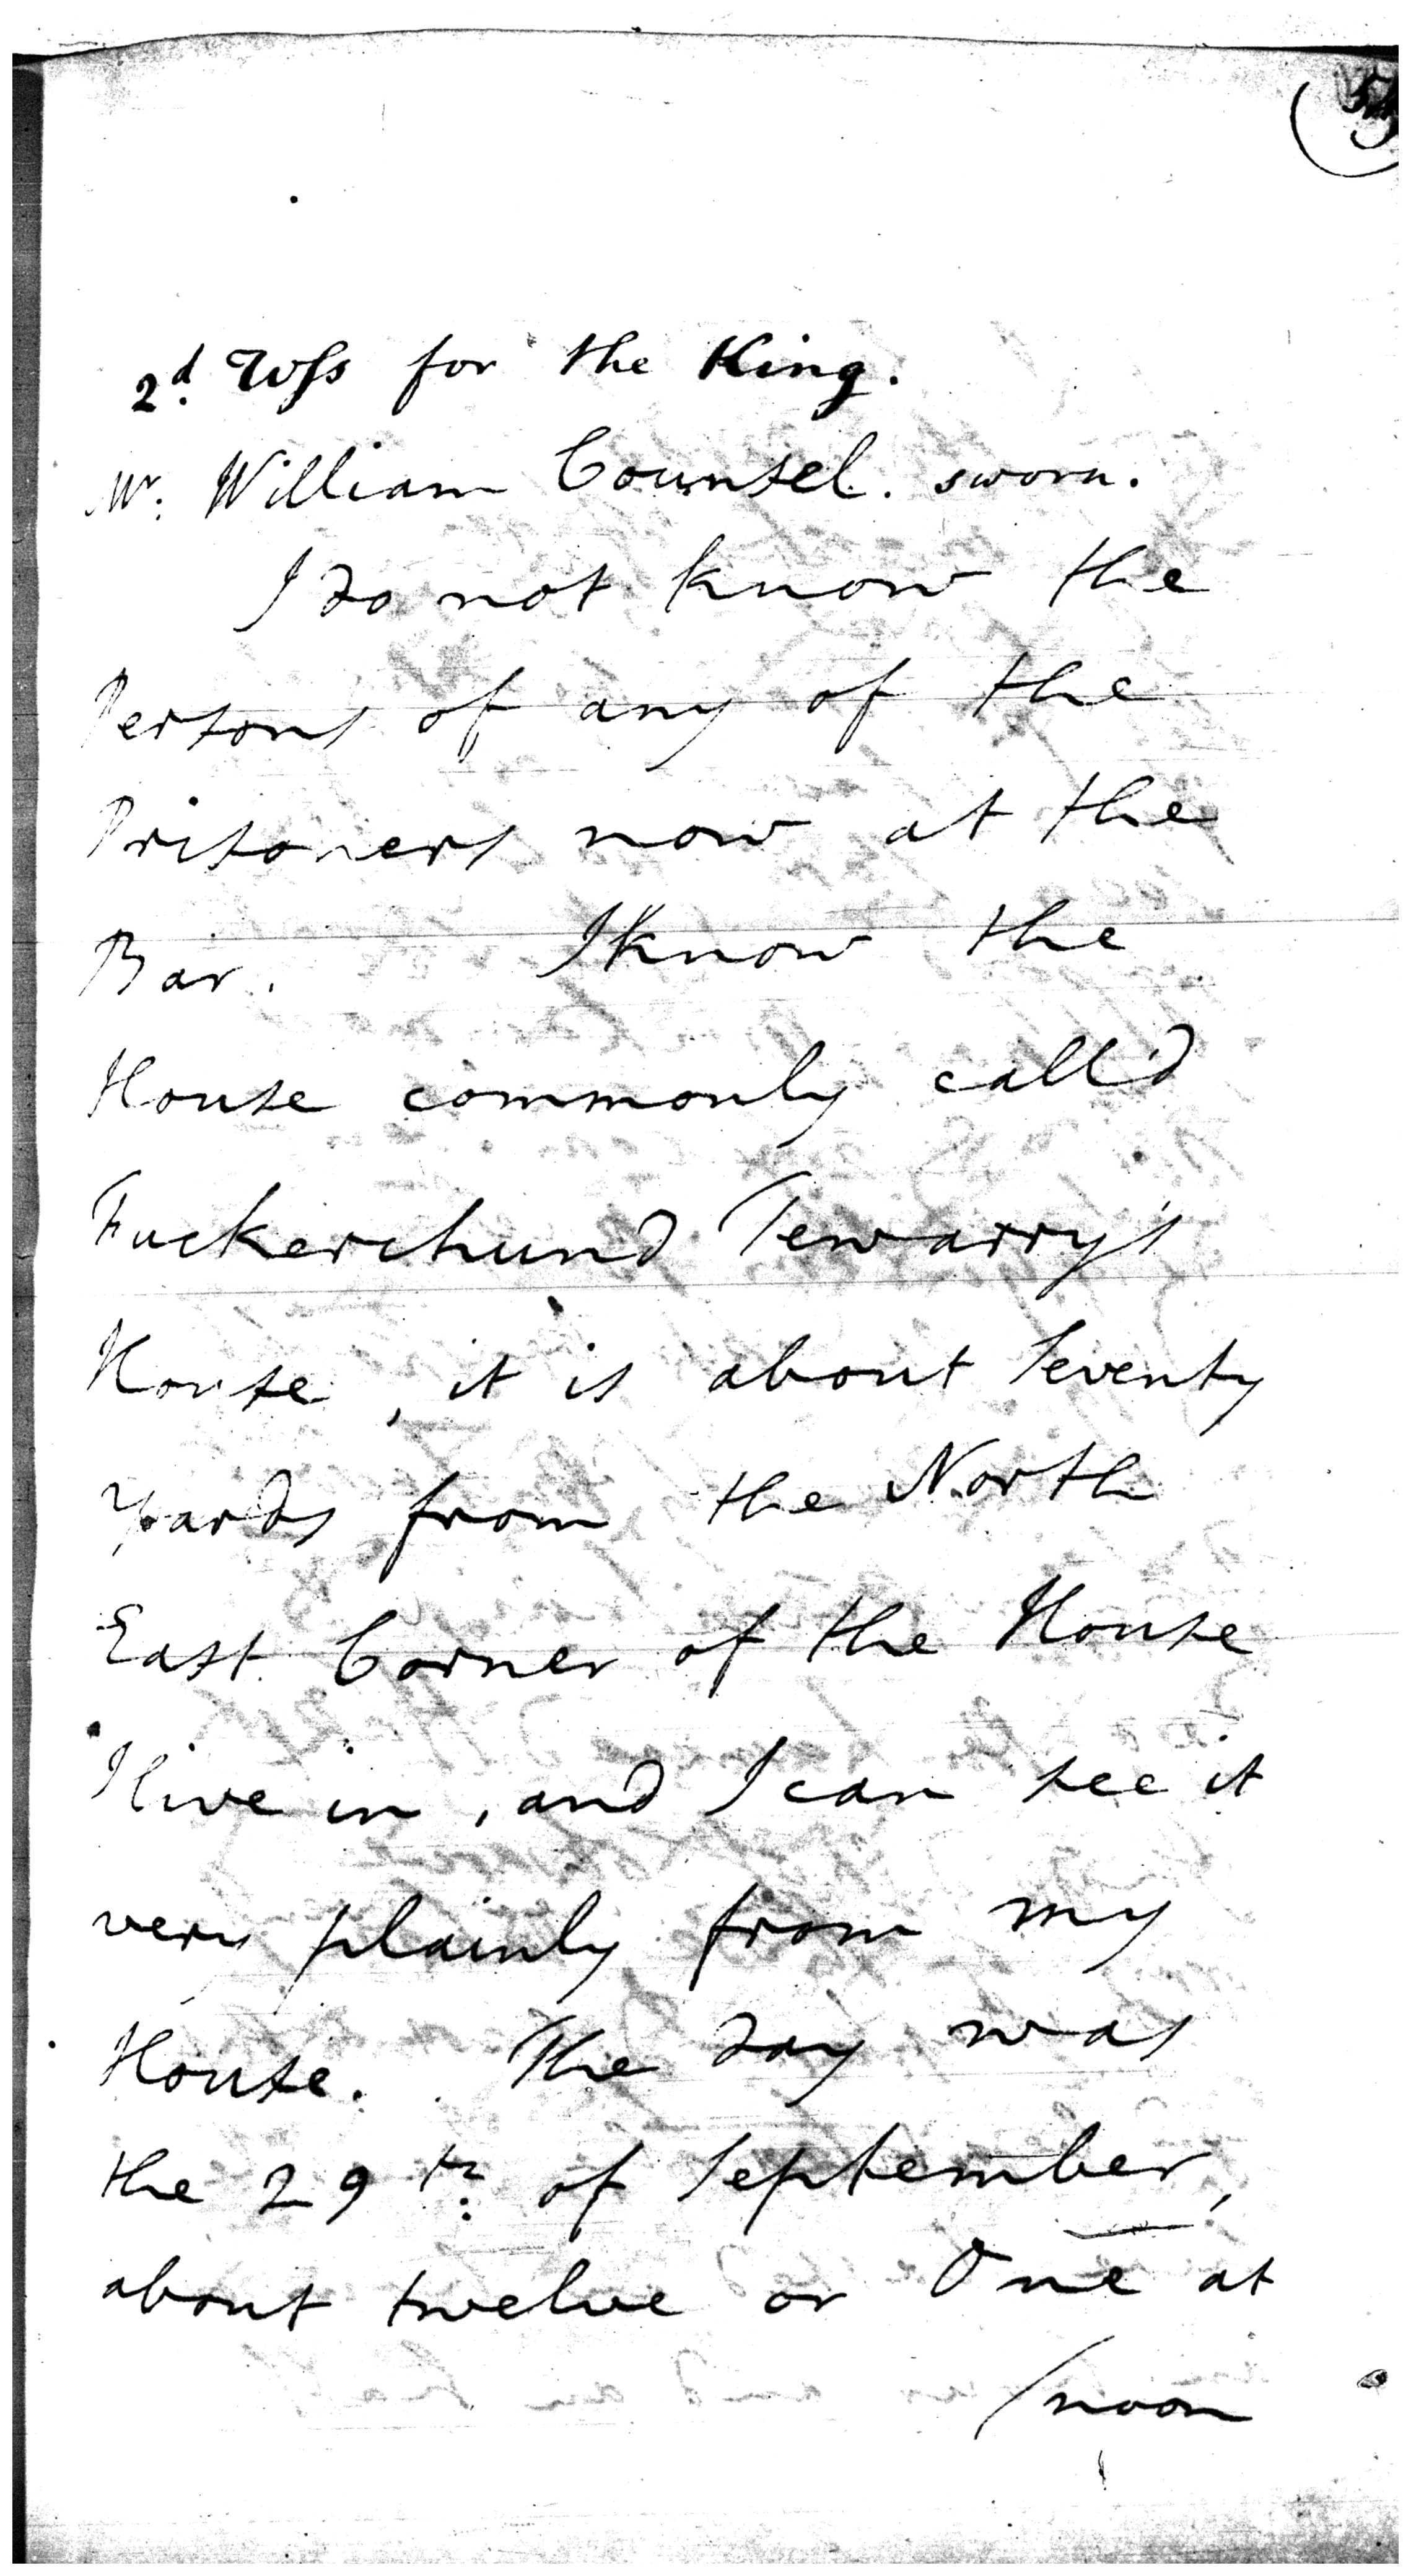 2d. Wss for the King.
Mr. William Counsel. sworn.
I do not know the
Persons of any of the
Prisoners now at the
Bar. I know the
House commonly call'd
Fuckerchund Tewarry's
House, it is about Seventy
Yards from the North
East Corner of the House
I live in, and I can see it
very plainly from my
House. The day was
the 29th. of September,
about twelve or One at
/noon